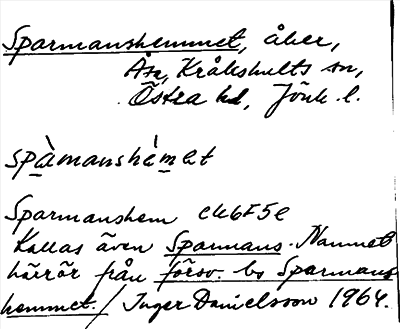 Sparmanshemmet, åker,
Åsa, Kråkshults sn,
Östra hd, Jönk. l.
spàmanshèmet
Sparmanshem ek 6F5e
Kallas även Sparmans. Namnet
härrör från försv. bs Sparmans
hemmet. / Inger Danielsson 1964.